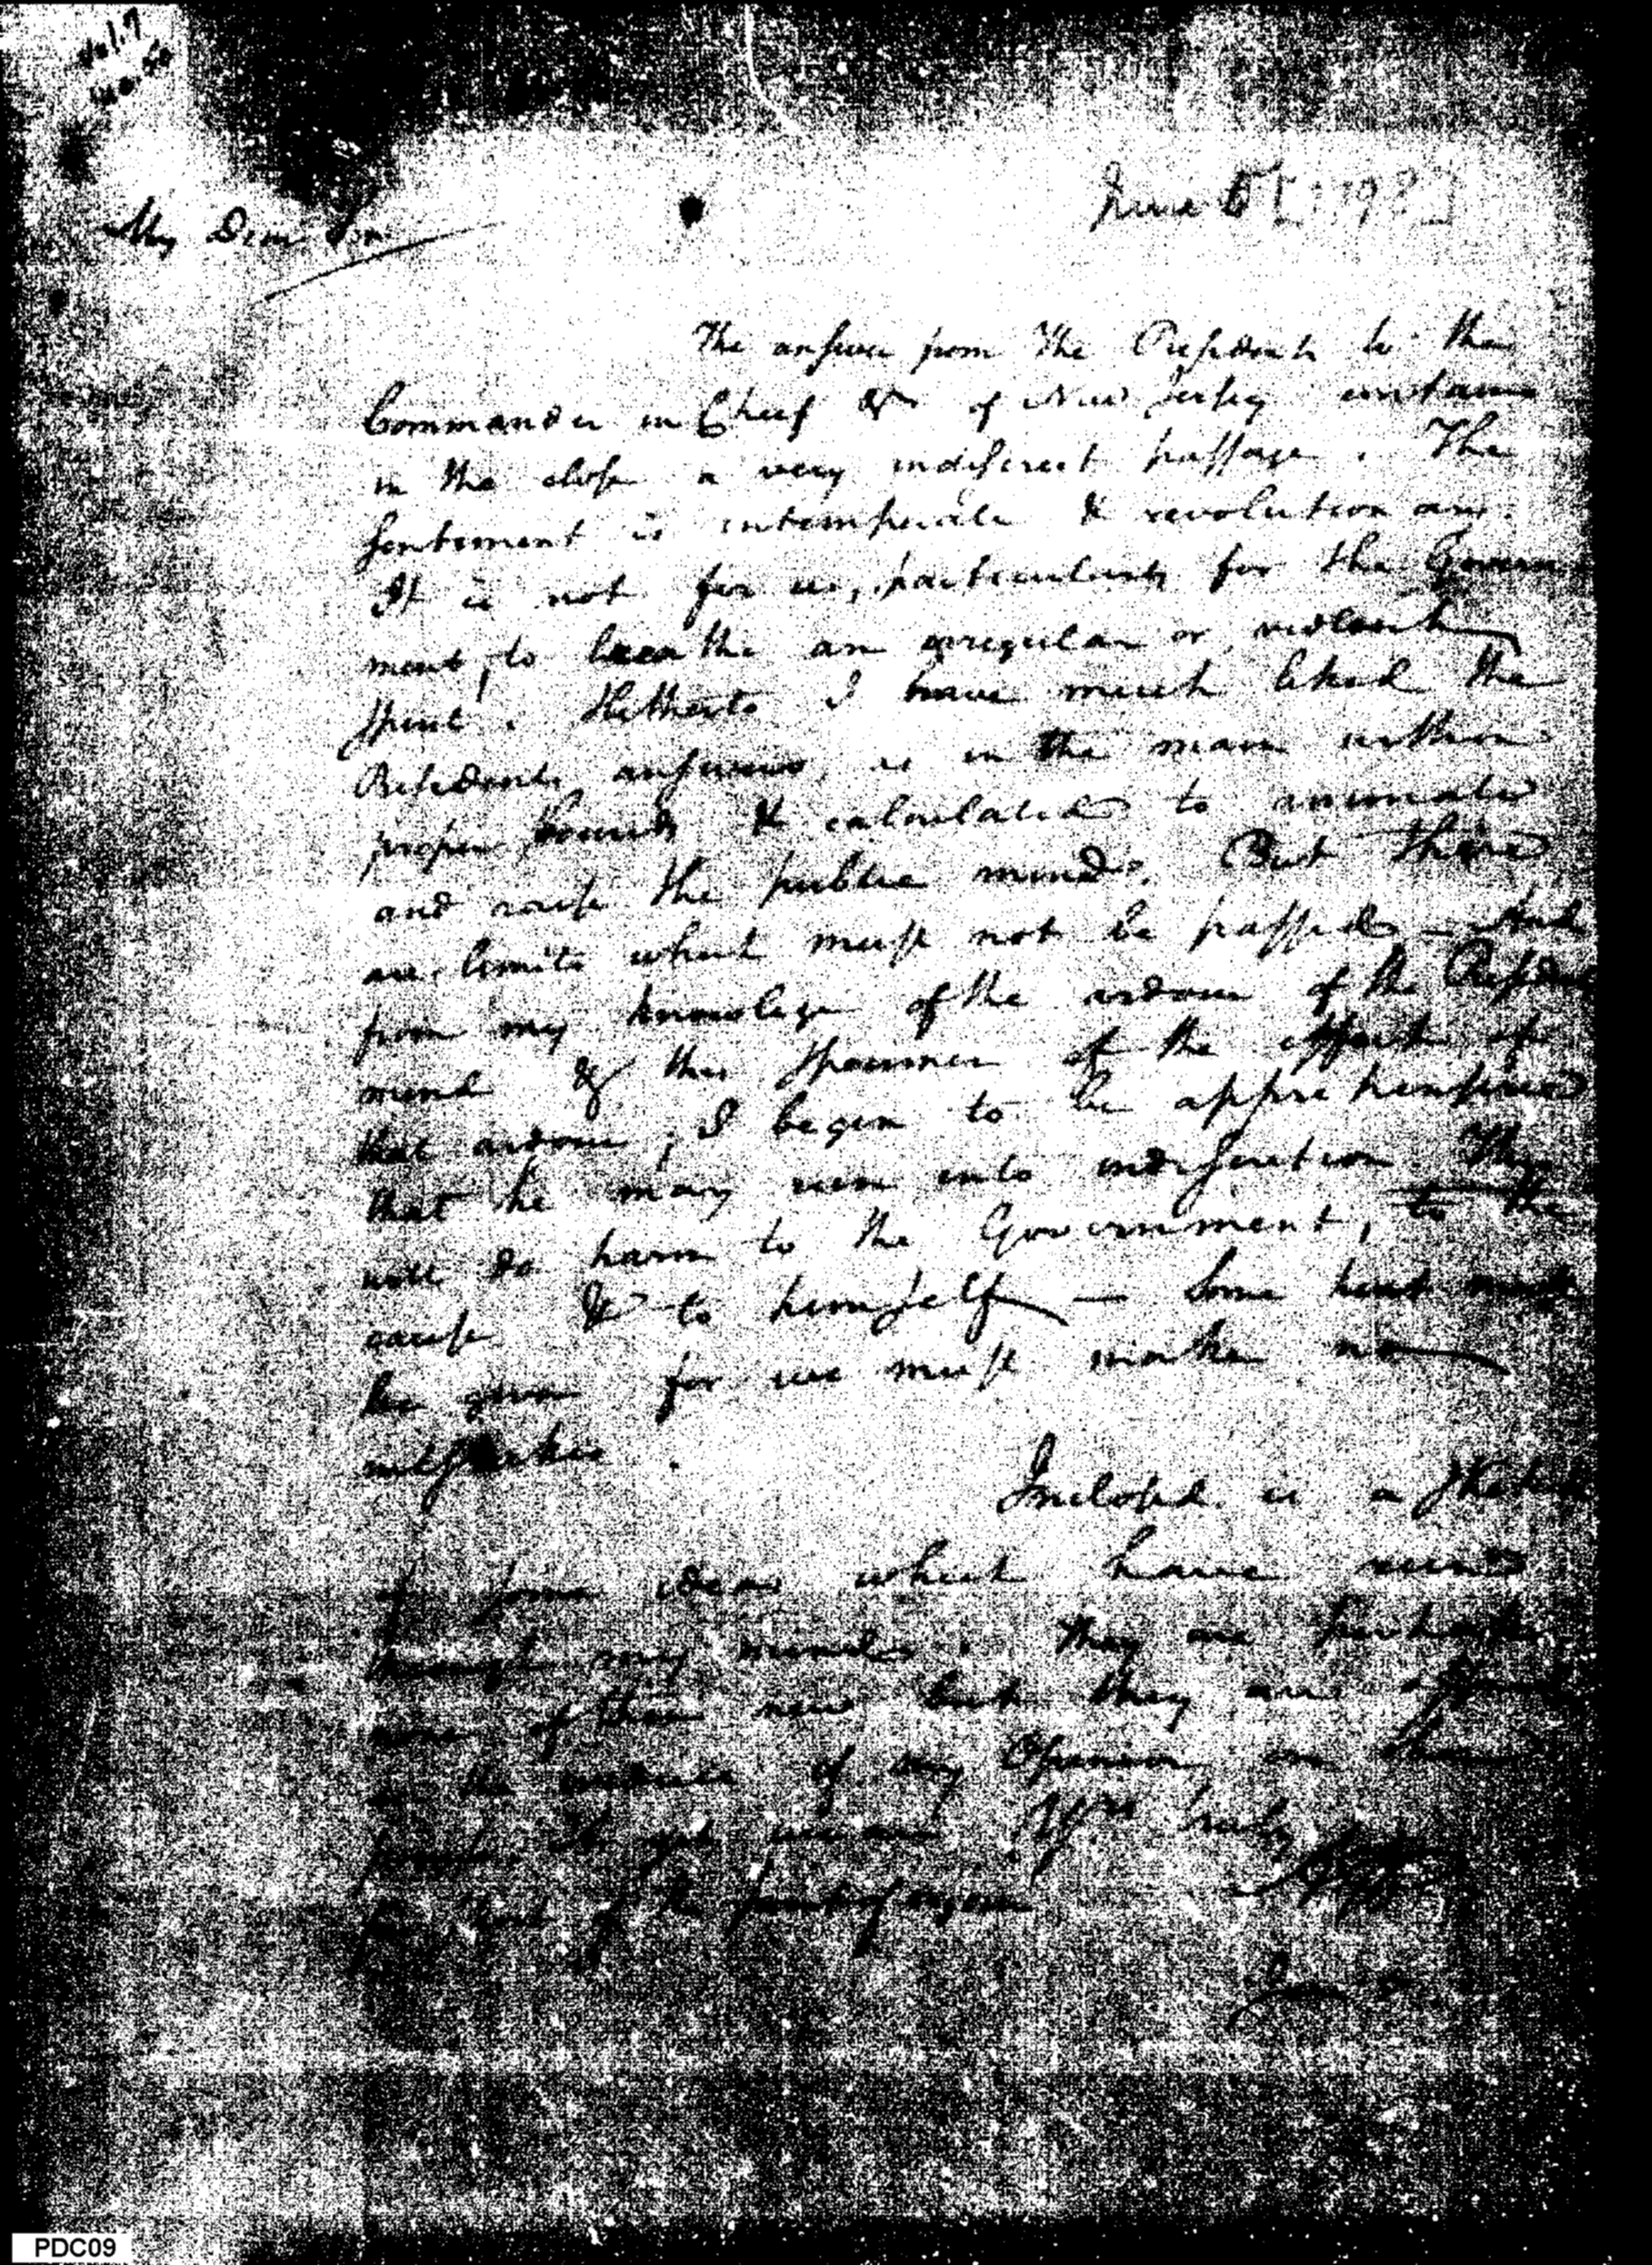 Vol. 7
My Dear Sir
June 5 [1798]
The answer from The President to the
Commander in Chief &c of New Jersey contains
in the close a very indiscreet passage. The
sentiment is intemperate & revolutionary.
It is not for us, particularly for the Govern
ment, to breathe an irregular or violent
spirit. Hitherto I have much liked the
Presidents answers, as in the main within
proper bounds & calculated to animate
and raise the public mind. But there
are limits which must not be passed — And
from my knowlege of the ardour of the Presidents
mind & this specimen of the effects of
that ardour, I begin to be apprehensive
that he may run into indiscretion. This
will do harm to the Government, to the
cause & to himself — Some hint must
be given for we must make no
mistakes.
Inclosed is a sketch
of some ideas which have run
through my mind. They are perhaps
none of them new but they are offered
as the evidence of my Opinion on the
Yrs truly
PDC09